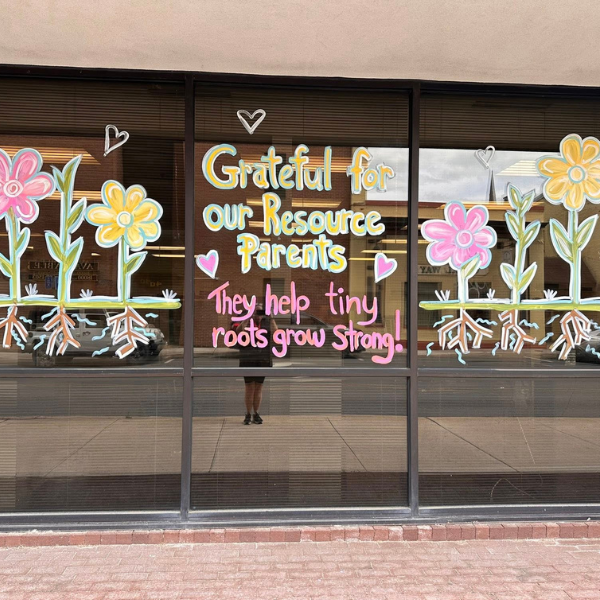 Grateful for
our Resource
Parents
They help tiny
roots grow strong!